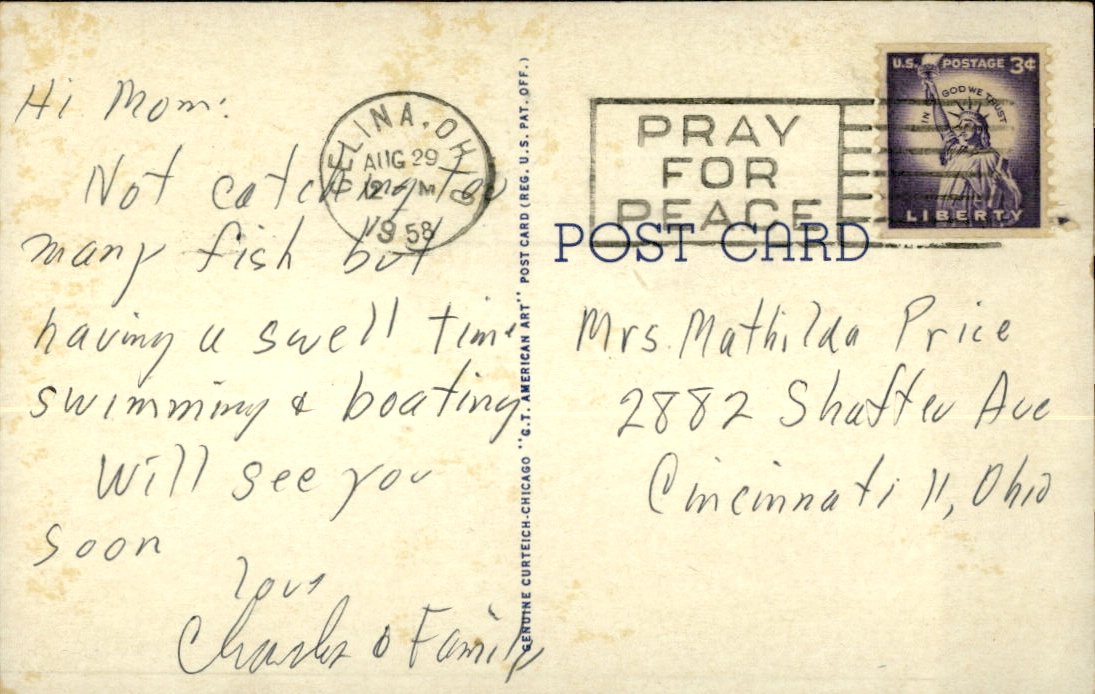 Hi Mom:
Not catching too
many fish but
having a swell time
swimming & boating
Will see you
soon
Love
Charles & Family
CELINA, OHIO
AUG 29
12 - M
1958
GENUINE CURTEICH-CHICAGO "C.T. AMERICAN ART" POST CARD (REG. U.S. PAT. OFF.)
PRAY
FOR
PEACE
U.S. POSTAGE 3¢
IN GOD WE TRUST
LIBERTY
POST CARD
Mrs. Mathilda Price
2882 Shaffer Ave
Cincinnati 11, Ohio